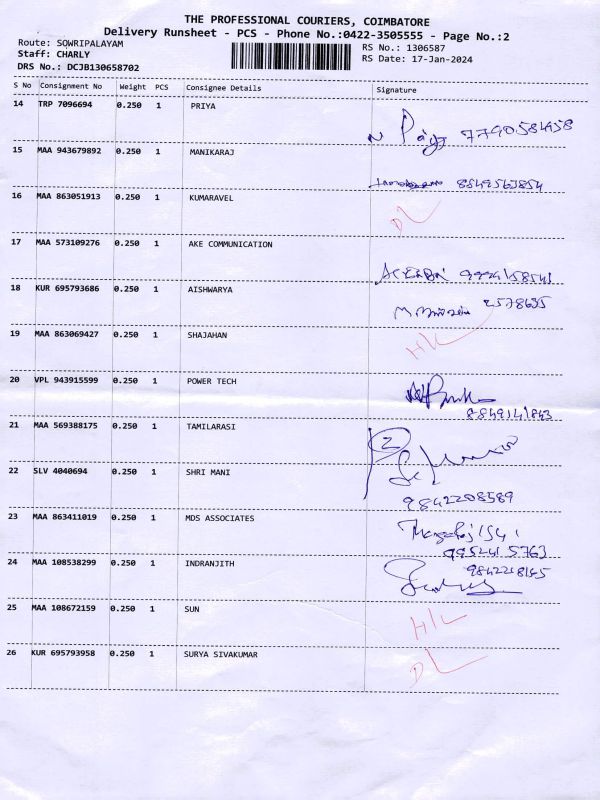 THE PROFESSIONAL COURIERS, COIMBATORE
Delivery Runsheet - PCS - Phone No.:0422-3505555 - Page No.:2
Route: SOWRIPALAYAM
RS No.: 1306587
Staff: CHARLY
RS Date: 17-Jan-2024
DRS No.: DCJB130658702
S No Consignment No Weight PCS Consignee Details Signature
14 TRP 7096694 0.250 1 PRIYA
7790584958
15 MAA 943679892 0.250 1 MANIKARAJ
8549563854
16 MAA 863051913 0.250 1 KUMARAVEL
DL
17 MAA 573109276 0.250 1 AKE COMMUNICATION
9994158541
18 KUR 695793686 0.250 1 AISHWARYA
2578635
19 MAA 863069427 0.250 1 SHAJAHAN
HL
20 VPL 943915599 0.250 1 POWER TECH
8849141843
21 MAA 569388175 0.250 1 TAMILARASI
22 SLV 4040694 0.250 1 SHRI MANI
9842208589
23 MAA 863411019 0.250 1 MDS ASSOCIATES
9952415763
24 MAA 108538299 0.250 1 INDRANJITH
9842218145
25 MAA 108672159 0.250 1 SUN
HL
26 KUR 695793958 0.250 1 SURYA SIVAKUMAR
DL